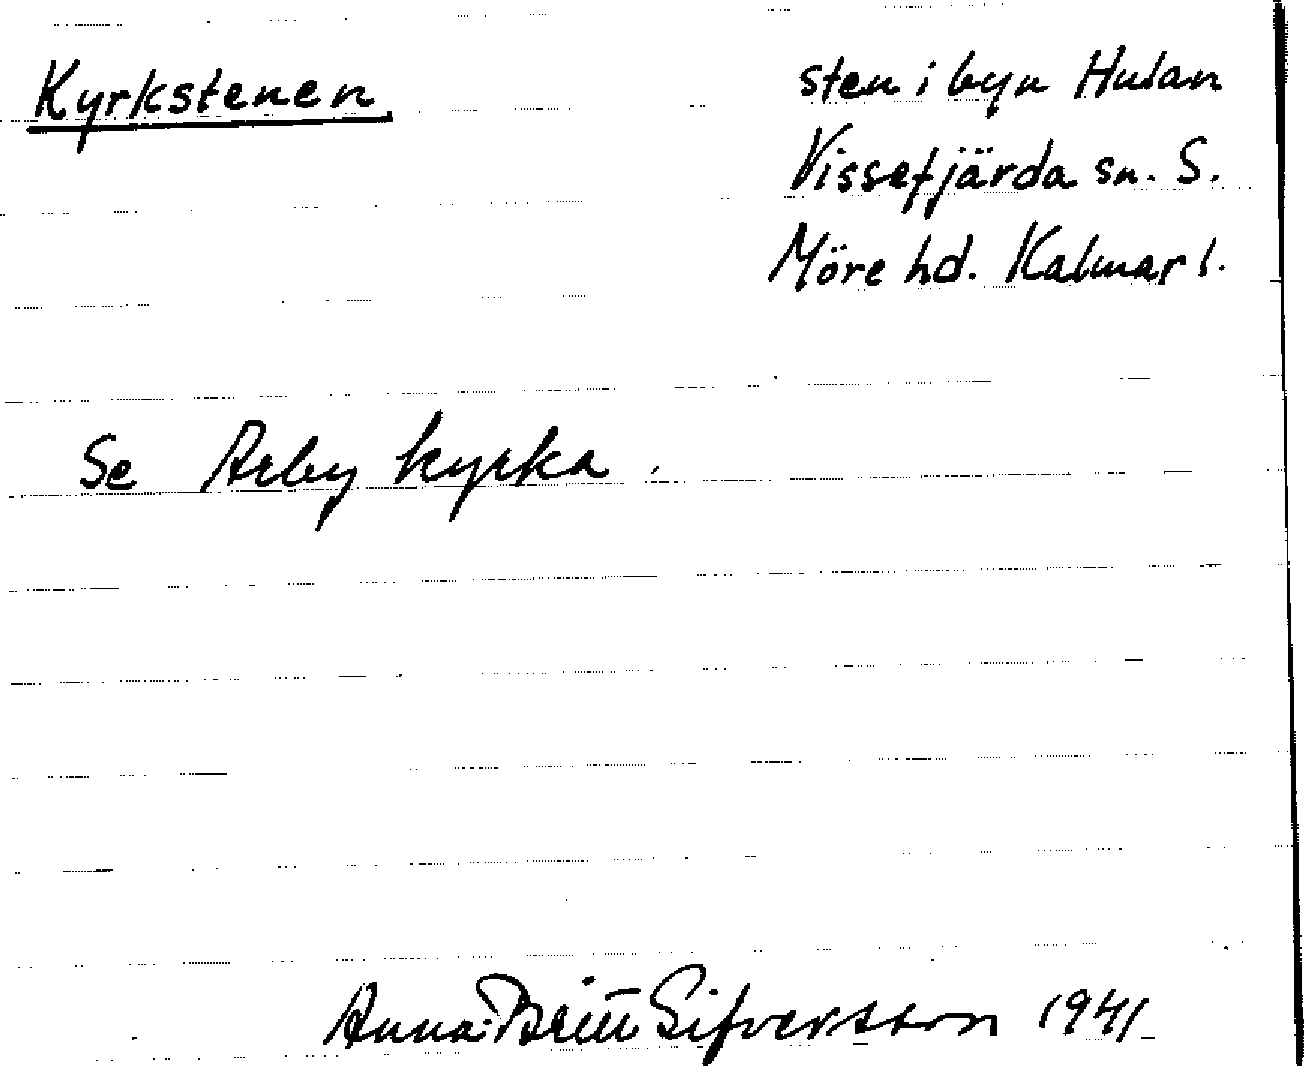 Kyrkstenen
sten i byn Hulan
Vissefjärda sn. S.
Möre hd. Kalmar l.
Se Arby kyrka.
Anna-Britt Sifversson 1941